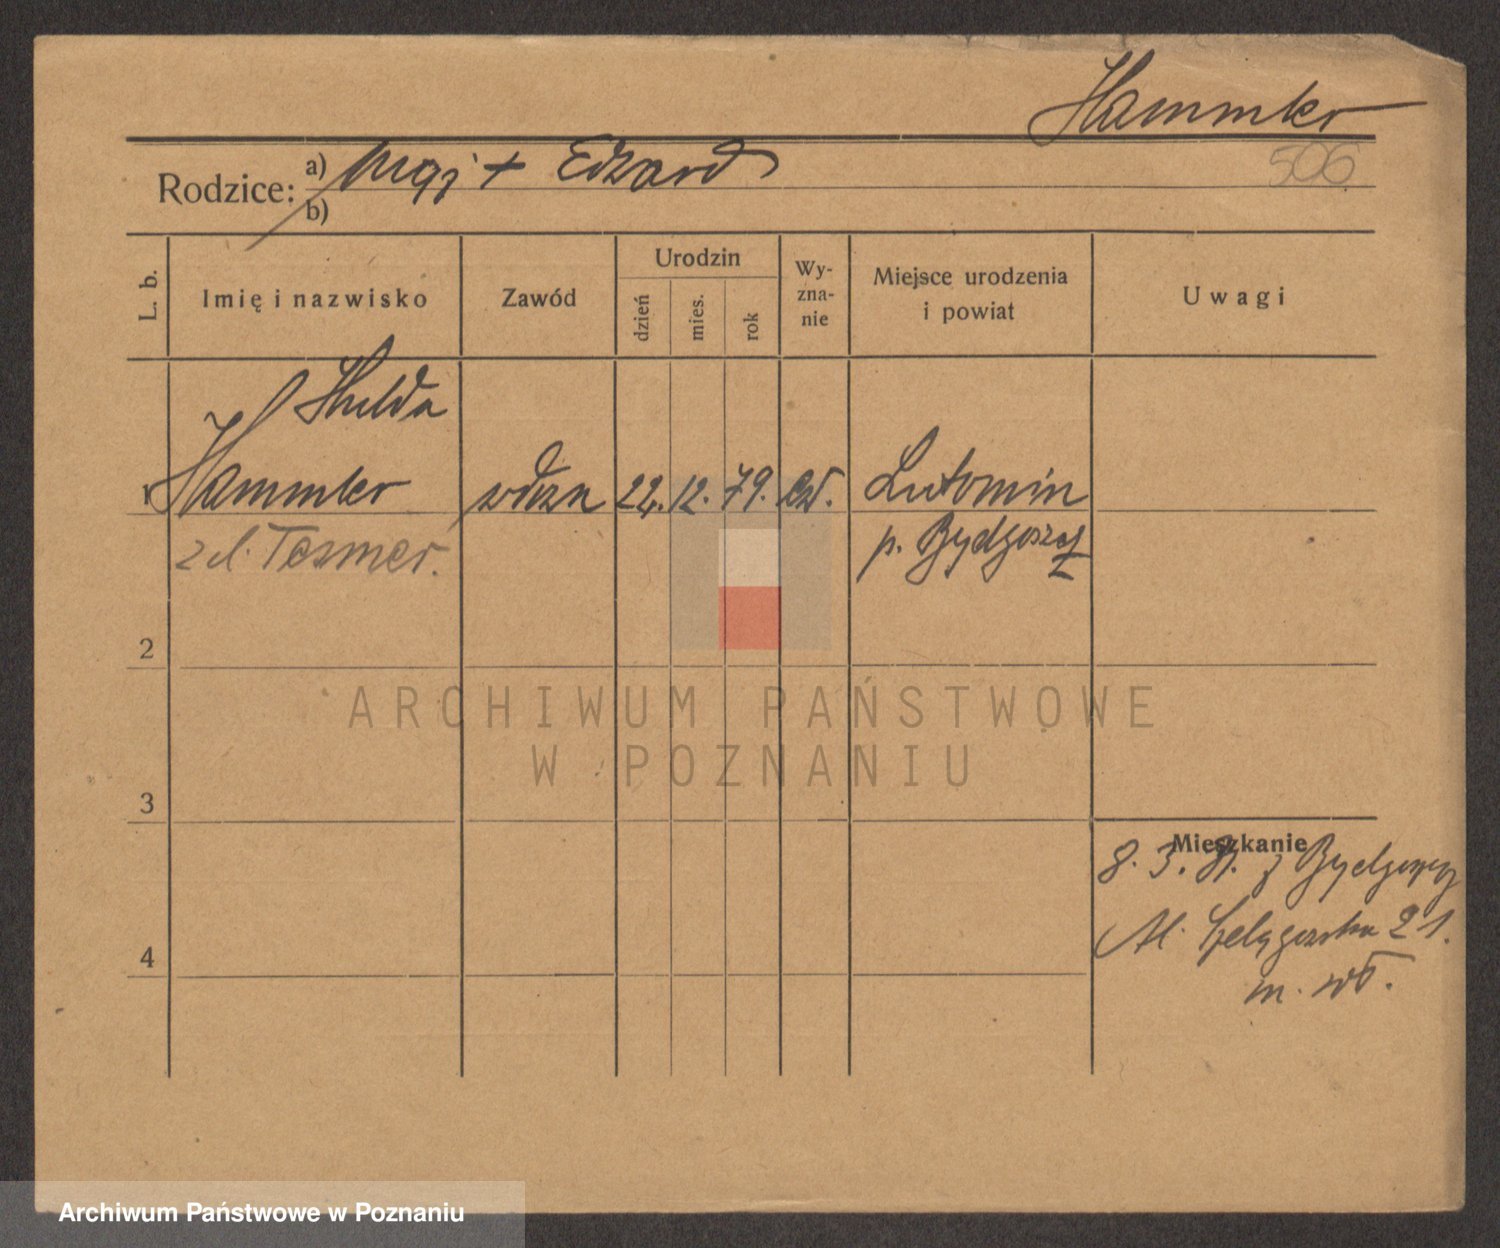 Hammler
506
Rodzice: a) mąż + Edward
b)
L. b.
Imię i nazwisko
Zawód
Urodzin
dzień
mies.
rok
Wy-
zna-
nie
Miejsce urodzenia
i powiat
Uwagi
Hulda
1 Hammler wdowa 22. 12. 79. ew. Lutomin
zd. Tesmer. p. Bydgoszcz
2
3
4
Mieszkanie
8. 3. 31. z Bydgoszczy
21.
m. wł.
ARCHIWUM PAŃSTWOWE
W POZNANIU
Archiwum Państwowe w Poznaniu